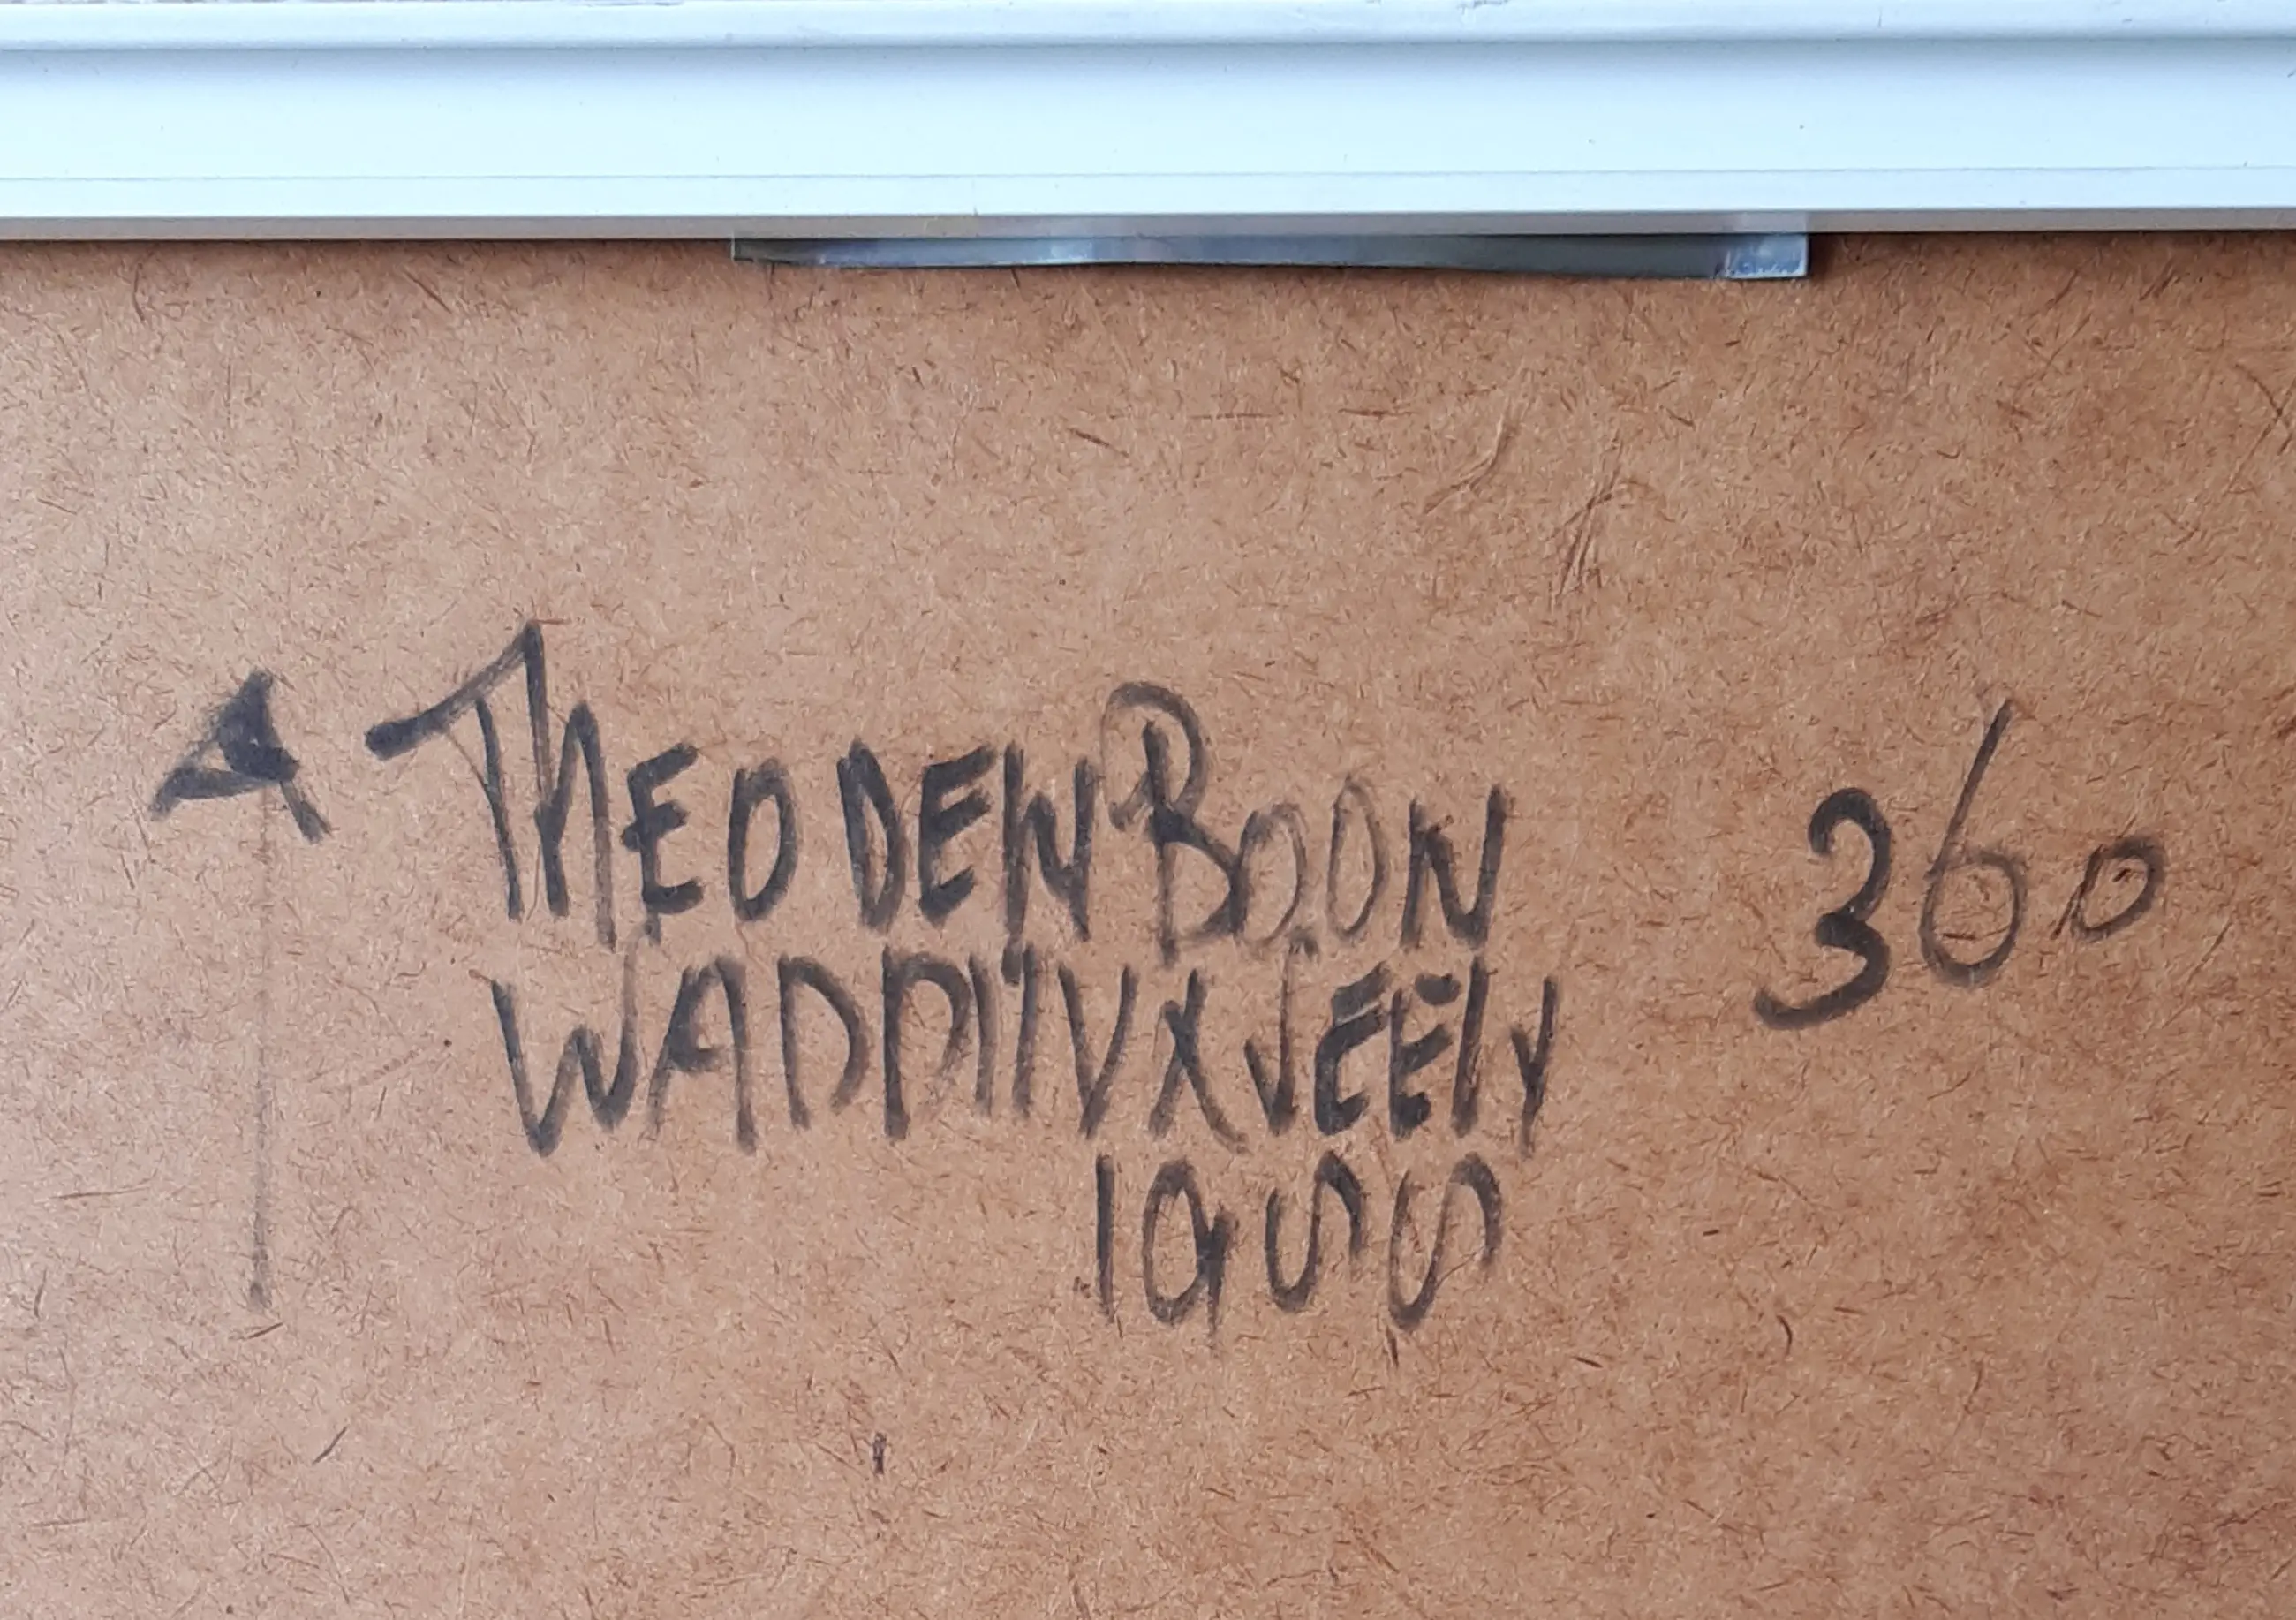 THEO DEN BOON 360
WADDINXVEEN
1955